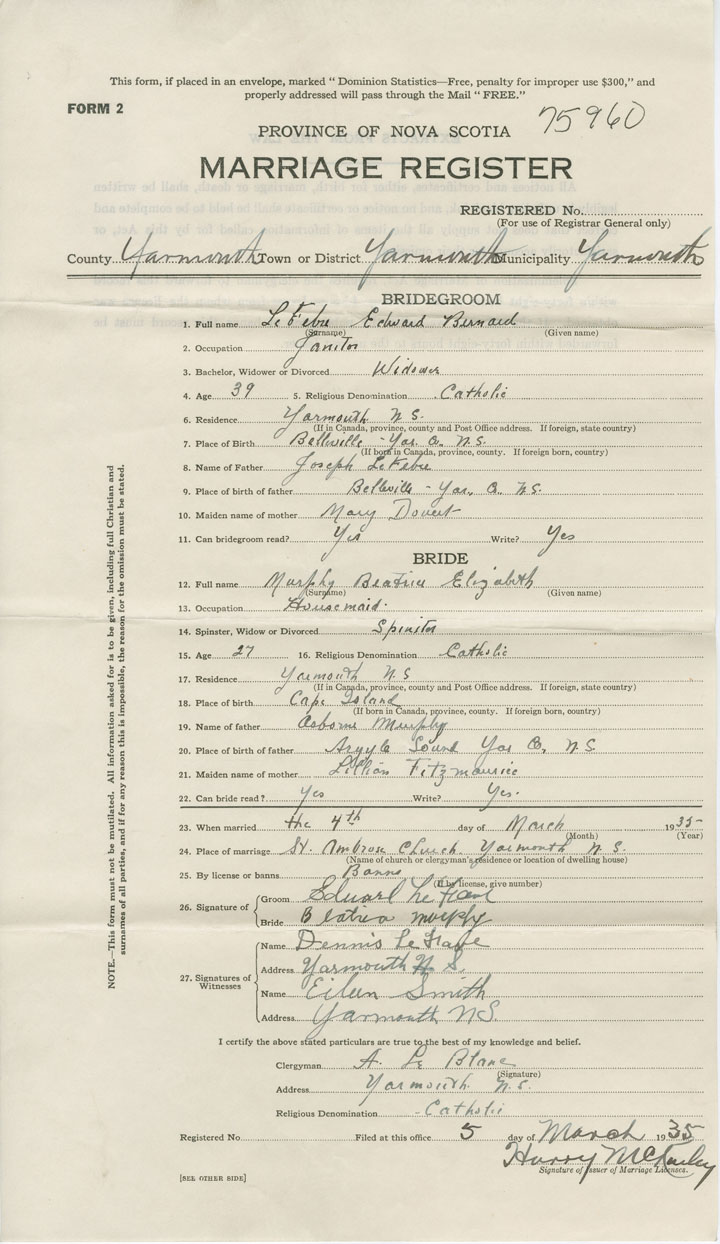 This form, if placed in an envelope, marked " Dominion Statistics—Free, penalty for improper use $300," and
properly addressed will pass through the Mail " FREE."
FORM 2
75960
PROVINCE OF NOVA SCOTIA
MARRIAGE REGISTER
REGISTERED No.
(For use of Registrar General only)
County Yarmouth Town or District Yarmouth Municipality Yarmouth
BRIDEGROOM
1. Full name LeFebre Edward Bernard
(Surname) (Given name)
2. Occupation Janitor
3. Bachelor, Widower or Divorced Widower
4. Age 39 5. Religious Denomination Catholic
6. Residence Yarmouth N.S.
(If in Canada, province, county and Post Office address. If foreign, state country)
7. Place of Birth Belleville - Yar. Co. N.S.
(If born in Canada, province, county. If foreign born, country)
8. Name of Father Joseph LeFebre
9. Place of birth of father Belleville - Yar. Co. N.S.
10. Maiden name of mother Mary Doucet
11. Can bridegroom read? Yes Write? Yes
BRIDE
12. Full name Murphy Beatrice Elizabeth
(Surname) (Given name)
13. Occupation Housemaid.
14. Spinster, Widow or Divorced Spinster
15. Age 27 16. Religious Denomination Catholic
17. Residence Yarmouth N.S
(If in Canada, province, county and Post Office address. If foreign, state country)
18. Place of birth Cape Island
(If born in Canada, province, county. If foreign born, country)
19. Name of father Osborne Murphy
20. Place of birth of father Argyle Sound Yar Co. N.S
21. Maiden name of mother Lillian Fitzmaurice
22. Can bride read? Yes Write? Yes.
23. When married the 4th day of March 1935
(Month) (Year)
24. Place of marriage St. Ambrose Church Yarmouth N.S.
(Name of church or clergyman's residence or location of dwelling house)
25. By license or banns Banns
(If by license, give number)
26. Signature of Groom Edward Le
Bride Beatrice Murphy
27. Signatures of Witnesses
Name Dennis Le
Address Yarmouth N.S.
Name Eileen Smith
Address Yarmouth N.S.
I certify the above stated particulars are true to the best of my knowledge and belief.
Clergyman A. Le Blanc
(Signature)
Address Yarmouth N.S.
Religious Denomination Catholic
Registered No. Filed at this office 5 day of March 1935
Harry
Signature of Issuer of Marriage Licenses.
[SEE OTHER SIDE]
NOTE.—This form must not be mutilated. All information asked for is to be given, including full Christian and
surnames of all parties, and if for any reason this is impossible, the reason for the omission must be stated.